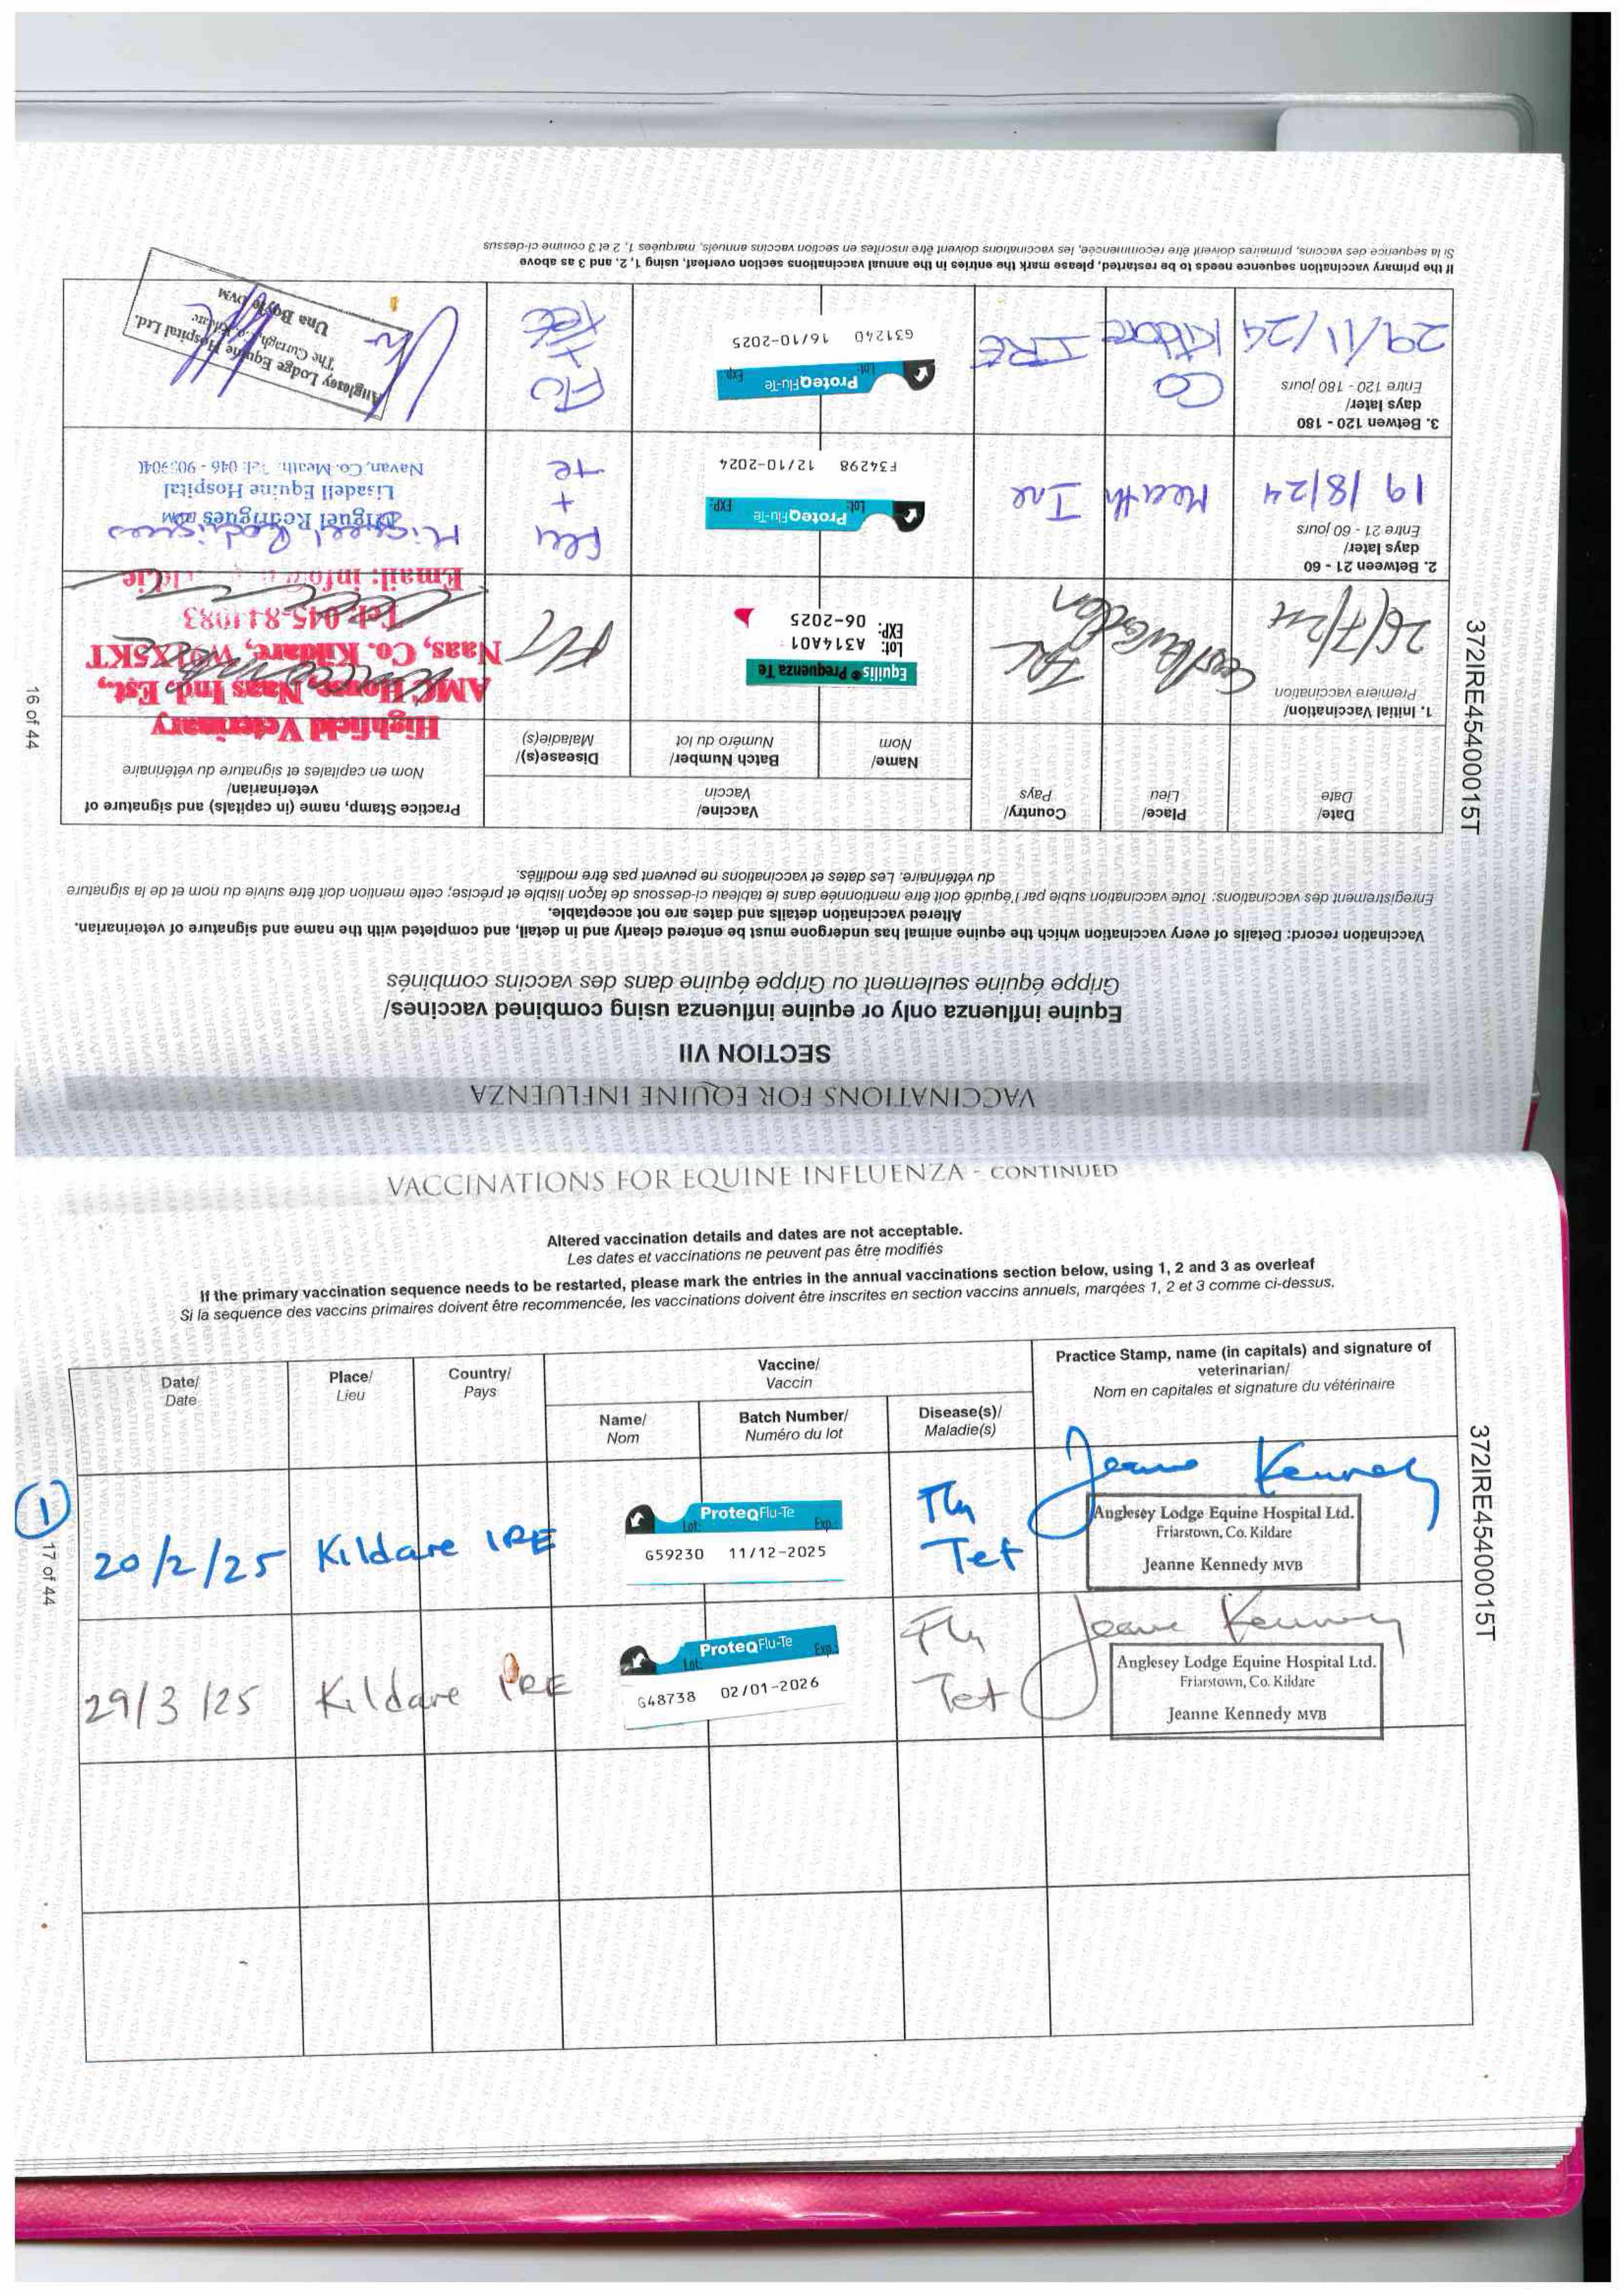 VACCINATIONS FOR EQUINE INFLUENZA
SECTION VII
Equine influenza only or equine influenza using combined vaccines/
Grippe équine seulement ou Grippe équine dans des vaccins combinés
Vaccination record: Details of every vaccination which the equine animal has undergone must be entered clearly and in detail, and completed with the name and signature of veterinarian.
Altered vaccination details and dates are not acceptable.
Enregistrement des vaccinations: Toute vaccination subie par l'équidé doit être mentionnée dans le tableau ci-dessous de façon lisible et précise; cette mention doit être suivie du nom et de la signature
du vétérinaire. Les dates et vaccinations ne peuvent pas être modifiés.
Date/
Date
Place/
Lieu
Country/
Pays
Vaccine/
Vaccin
Name/
Nom
Batch Number/
Numéro du lot
Disease(s)/
Maladie(s)
Practice Stamp, name (in capitals) and signature of
veterinarian/
Nom en capitales et signature du vétérinaire
1. Initial Vaccination/
Première vaccination
26/7/24
IRE
Equilis Prequenza Te
Lot: A314A01
EXP: 06-2025
Highfield Veterinary
AMC House, Naas Ind. Est.,
Naas, Co. Kildare, W91X5KT
Tel: 045-841083
Email: info
2. Between 21 - 60
days later/
Entre 21 - 60 jours
19/8/24
Meath
Ire
ProteqFlu-Te
Lot: EXP:
F34298 12/10-2024
Flu
+
te
Miguel Rodrigues
Miguel Rodrigues
Lisadell Equine Hospital
Navan, Co. Meath. Tel: 046 -
3. Betwen 120 - 180
days later/
Entre 120 - 180 jours
29/11/24
CO
Kildare
IRE
ProteqFlu-Te
Lot: Exp:
G31240 16/10-2025
FLU
+
Tet
Anglesey Lodge Equine Hospital Ltd.
The Curragh, Co. Kildare
Una Boyle DVM
If the primary vaccination sequence needs to be restarted, please mark the entries in the annual vaccinations section overleaf, using 1, 2, and 3 as above
Si la sequence des vaccins, primaires doivent être recommencée, les vaccinations doivent être inscrites en section vaccins annuels, marquées 1, 2 et 3 comme ci-dessus
372IRE45400015T
16 of 44
VACCINATIONS FOR EQUINE INFLUENZA - CONTINUED
Altered vaccination details and dates are not acceptable.
Les dates et vaccinations ne peuvent pas être modifiés
If the primary vaccination sequence needs to be restarted, please mark the entries in the annual vaccinations section below, using 1, 2 and 3 as overleaf
Si la sequence des vaccins primaires doivent être recommencée, les vaccinations doivent être inscrites en section vaccins annuels, marqées 1, 2 et 3 comme ci-dessus.
Date/
Date
Place/
Lieu
Country/
Pays
Vaccine/
Vaccin
Name/
Nom
Batch Number/
Numéro du lot
Disease(s)/
Maladie(s)
Practice Stamp, name (in capitals) and signature of
veterinarian/
Nom en capitales et signature du vétérinaire
1
20/2/25
Kildare
IRE
ProteqFlu-Te
Lot: Exp.:
G59230 11/12-2025
Flu
Tet
Jeanne Kennedy
Anglesey Lodge Equine Hospital Ltd.
Friarstown, Co. Kildare
Jeanne Kennedy MVB
29/3/25
Kildare
IRE
ProteqFlu-Te
Lot: Exp.:
G48738 02/01-2026
Flu
Tet
Jeanne Kennedy
Anglesey Lodge Equine Hospital Ltd.
Friarstown, Co. Kildare
Jeanne Kennedy MVB
372IRE45400015T
17 of 44